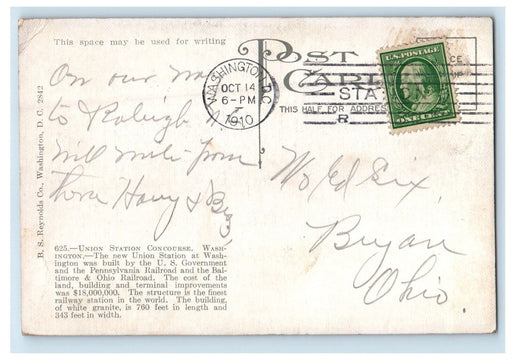 This space may be used for writing
On our way
to Raleigh
will write from
there Harry &
POST CARD
THIS HALF FOR ADDRESS
WASHINGTON, D.C.
OCT 14
6-PM
1910
STA.
R
U.S. POSTAGE
ONE CENT
Ed Six,
Bryan
Ohio
B. S. Reynolds Co., Washington, D. C. 2842
625.—UNION STATION CONCOURSE, WASH-
INGTON.—The new Union Station at Wash-
ington was built by the U. S. Government
and the Pennsylvania Railroad and the Bal-
timore & Ohio Railroad. The cost of the
land, building and terminal improvements
was $18,000,000. The structure is the finest
railway station in the world. The building,
of white granite, is 760 feet in length and
343 feet in width.